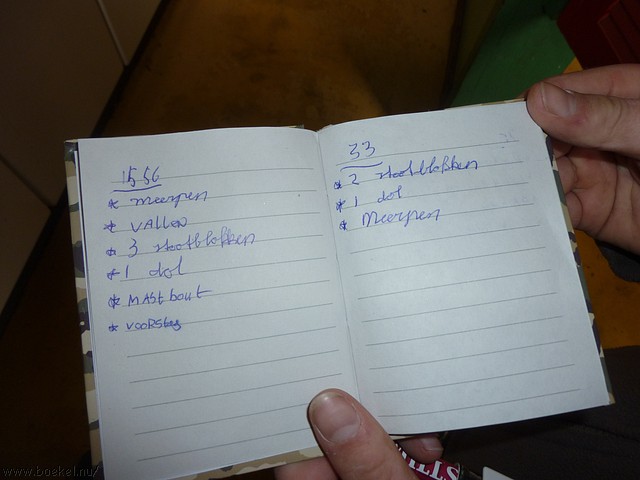 1556
* meerpen
* VALLEN
* 3 stootblokken
* 1 dol
* MASt bout
* VOORstag
33
* 2 stootblokken
* 1 dol
* Meerpen
www.boekel.nu/